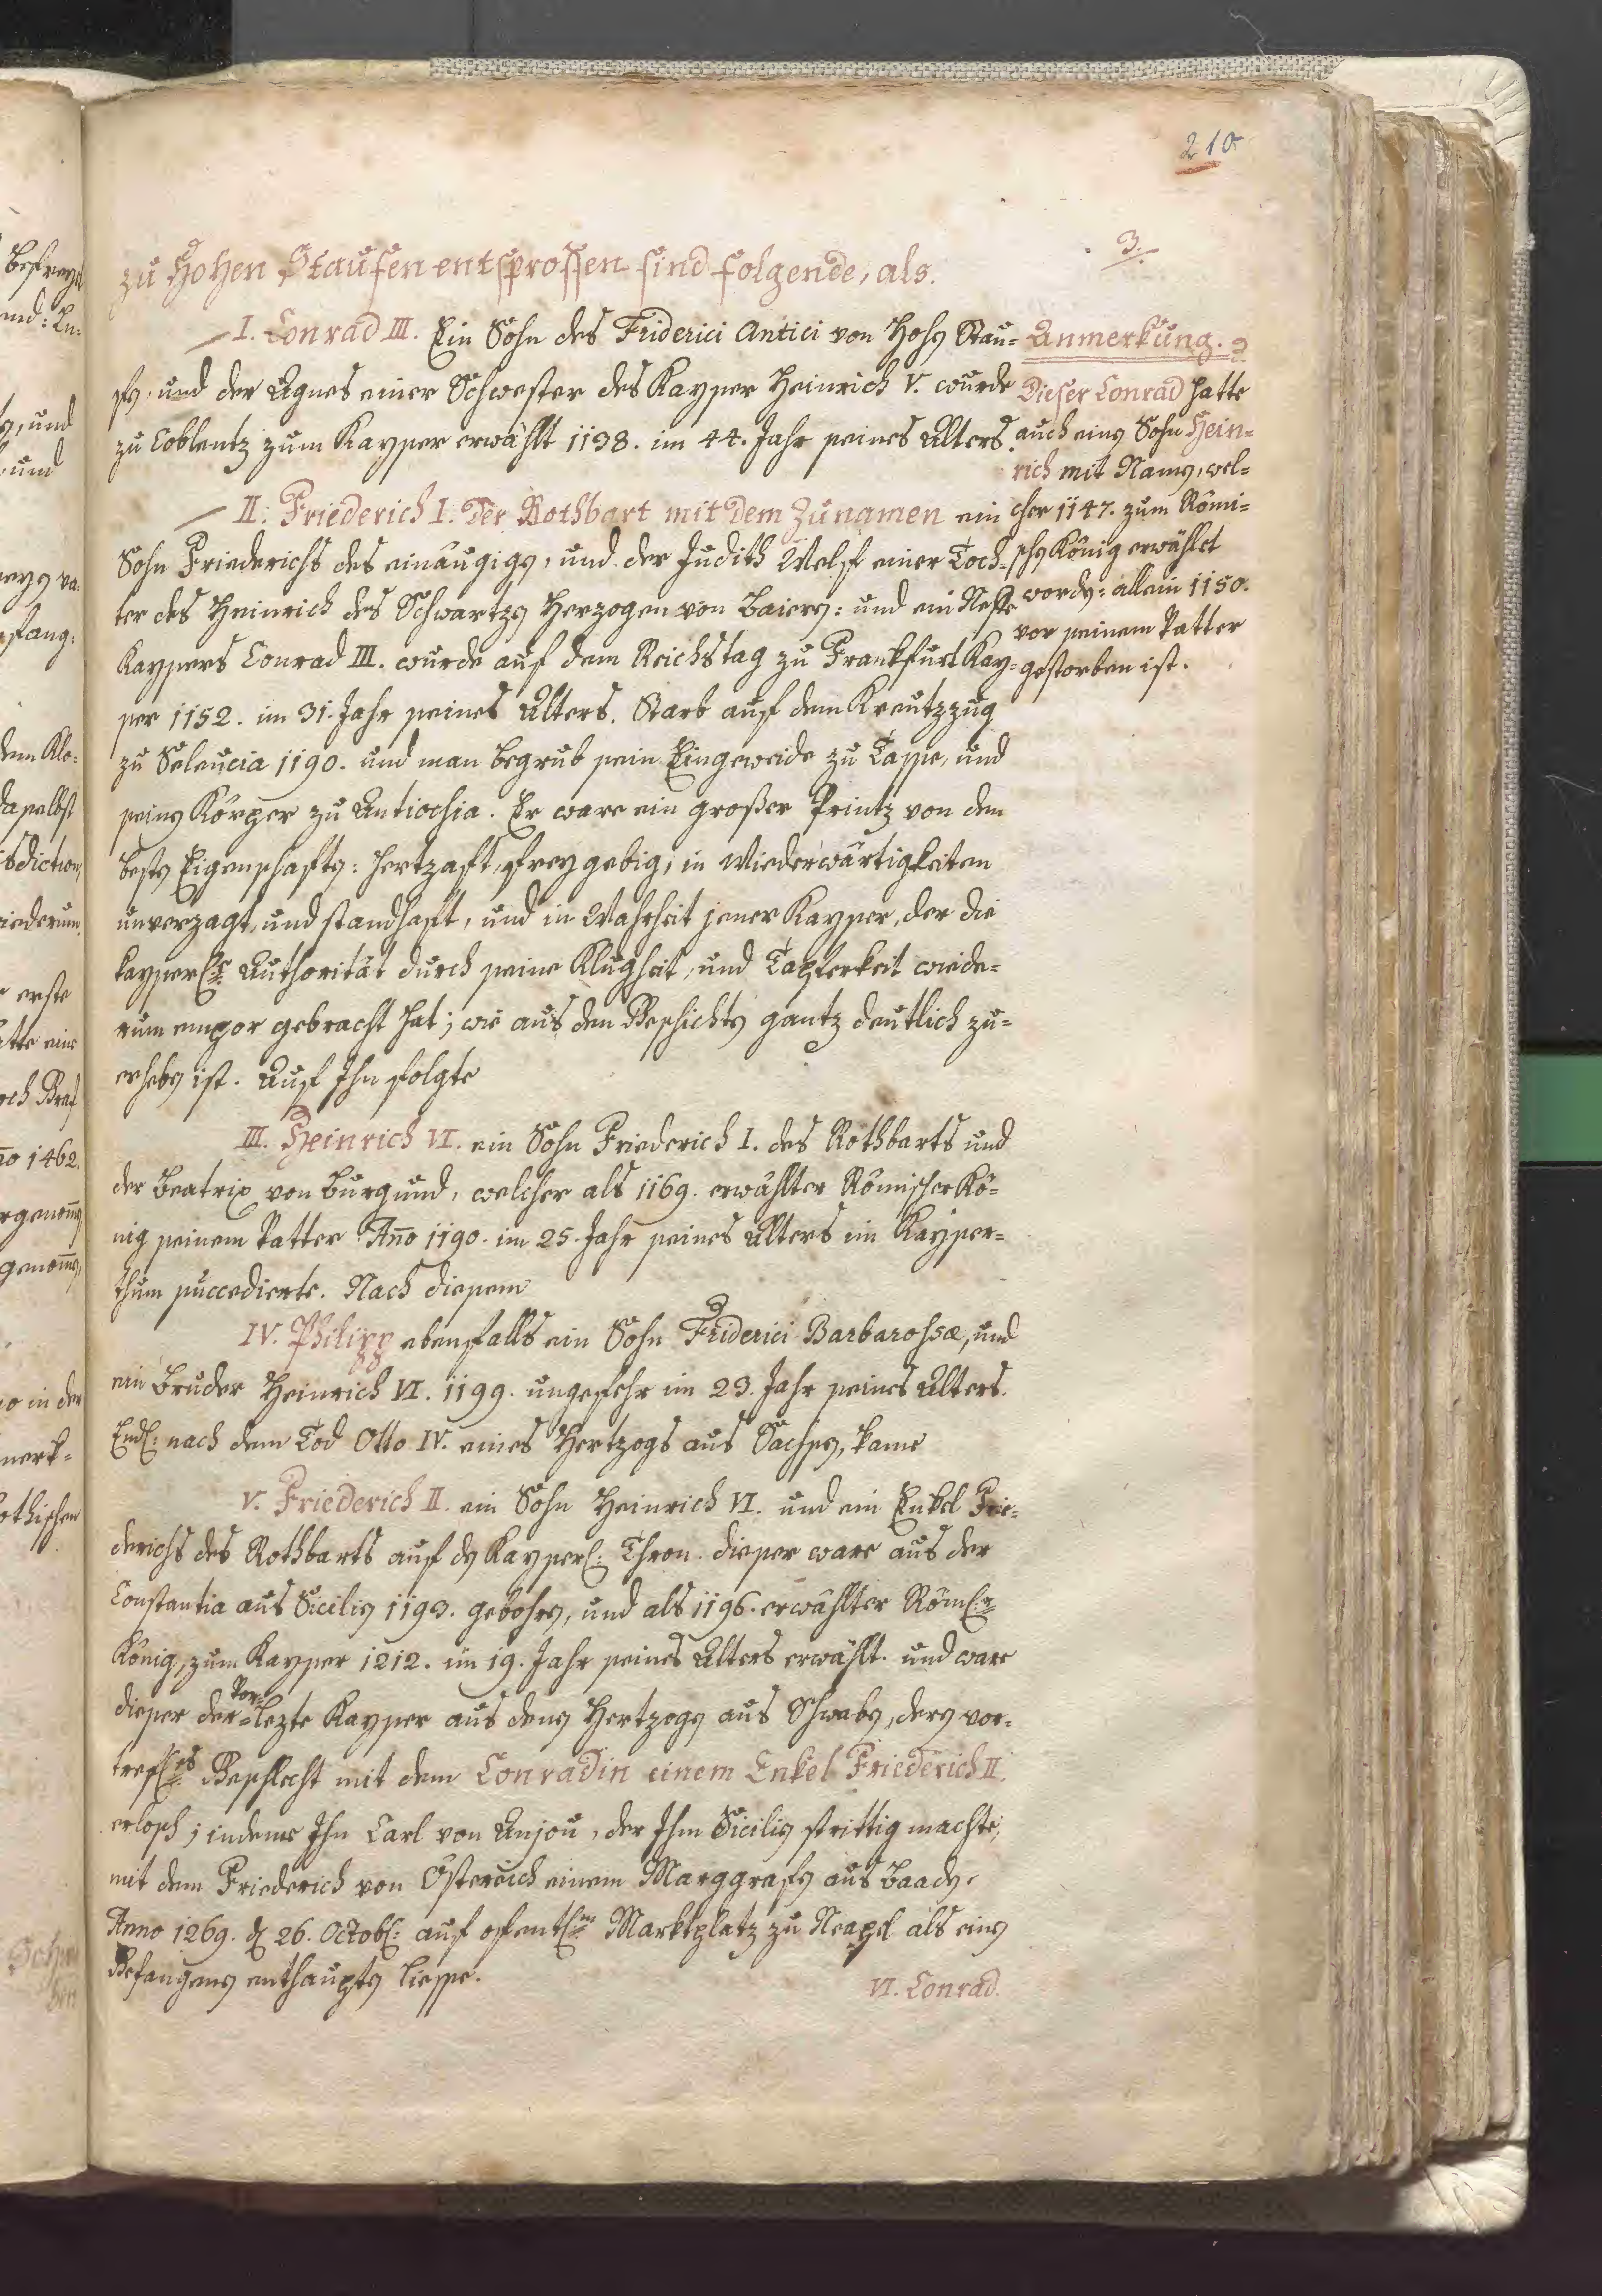 210
3.
zu Hohen Staufen entsprossen sind folgende, als.
I. Conrad III. Ein Sohn des Friderici Antici von Hohen Stau=
fen, und der Agnes einer Schwester des Kayser Heinrich V. wurde
zu Coblentz zum Kayser erwählt 1138. im 44. Jahr seines Alters.
II. Friederich I. Der Rothbart mit dem Zunamen ein
Sohn Friederichs des einäugigen, und der Judith Welf einer Toch=
ter des Heinrich des Schwartzen Herzogen von Baiern: und ein Neffe
Kaysers Conrad III. wurde auf dem Reichstag zu Frankfurt Kay=
ser 1152. im 31. Jahr seines Alters. Starb auf dem Kreutzzug
zu Seleucia 1190. und man begrub sein Eingeweide zu Tasse, und
seinen Körper zu Antiochia. Er ware ein großer Printz von den
besten Eigenschaften: hertzaft, freygebig, in Wiederwärtigkeiten
unverzagt, und standhaft, und in Wahrheit jener Kayser, der die
kayserl:e Authorität durch seine Klugheit, und Tapferkeit wiede=
rum empor gebracht hat; wie aus den Geschichten gantz deutlich zu=
ersehen ist. Auf Ihn folgte
III. Heinrich VI. ein Sohn Friederich I. des Rothbarts und
der Beatrix von Burgund, welcher als 1169. erwählter Römischer Kö=
nig seinem Vatter Año 1190. im 25. Jahr seines Alters im Kayser=
thum succedierte. Nach diesem
IV. Philipp ebenfalls ein Sohn Friderici Barbarossæ, und
ein Bruder Heinrich VI. 1199. ungefehr im 23. Jahr seines Alters.
Endl: nach dem Tod Otto IV. eines Hertzogs aus Sachsen, kame
V. Friederich II. ein Sohn Heinrich VI. und ein Enkel Frie=
derichs des Rothbarts auf den Kayserl: Thron. dieser ware aus der
Constantia aus Sicilien 1193. gebohren, und als 1196. erwählter Röml:r
König, zum Kayser 1212. im 19. Jahr seines Alters erwählt. und ware
dieser der Vor=lezte Kayser aus denen Hertzogen aus Schwaben, deren vor=
trefl:es Geschlecht mit dem Conradin einem Enkel Friederich II.
erlosch; indeme Ihn Carl von Anjou, der Ihm Sicilien strittig machte,
mit dem Friederich von Östereich einem Marggrafen aus Baaden,
Anno 1269. d 26. Octobl: auf ofentl:m Marktplatz zu Neapel als einen
Gefangenen enthaupten liesse.
VI. Conrad.
Anmerkung.
Dieser Conrad hatte
auch einen Sohn Hein=
rich mit Namen, wel=
cher 1147. zum Römi=
schen König erwählet
worden: allein 1150.
vor seinem Vatter
gestorben ist.